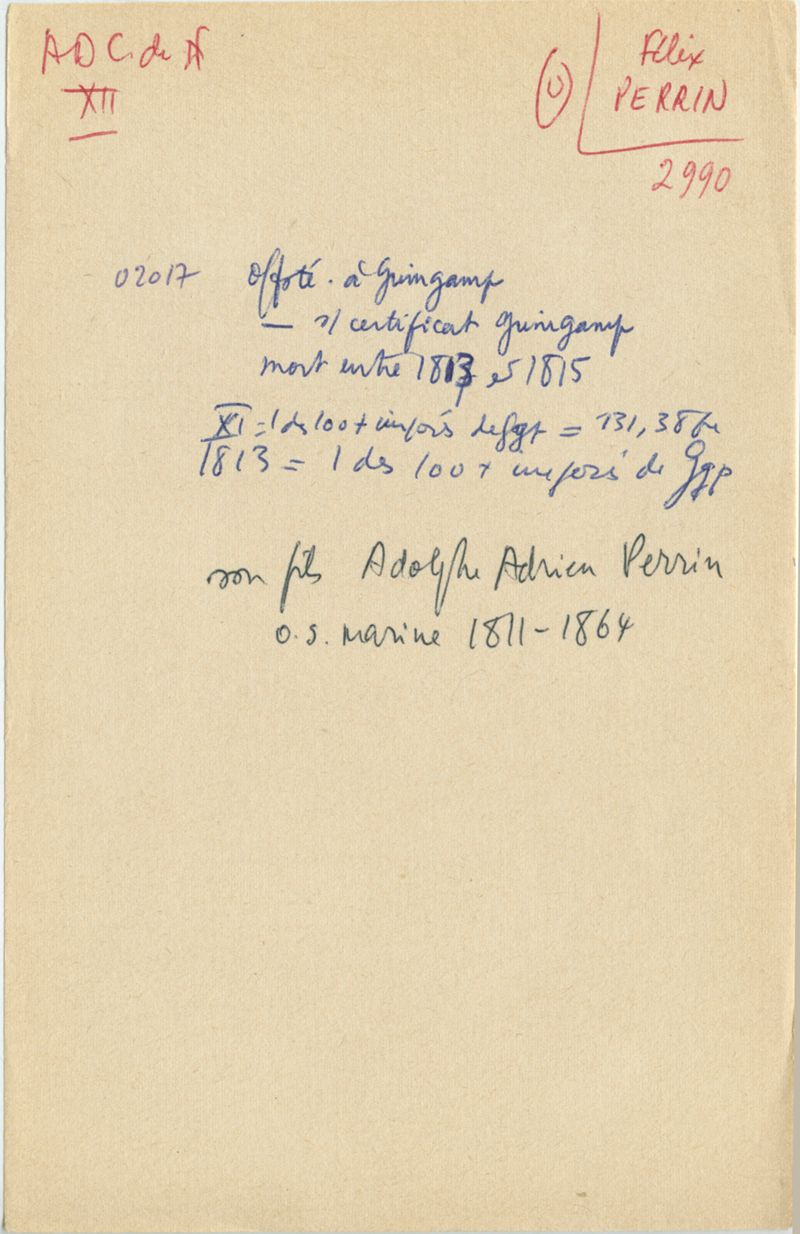 AD C. du N
XII
(U)
Félix
PERRIN
2990
02017 à Guingamp
— s/ certificat Guingamp
mort entre 1813 et 1815
XI = 1 des 100 + imposés de Ggp = 131,38 fr
1813 = 1 des 100 + imposés de Ggp
son fils Adolphe Adrien Perrin
o.s. marine 1811-1864